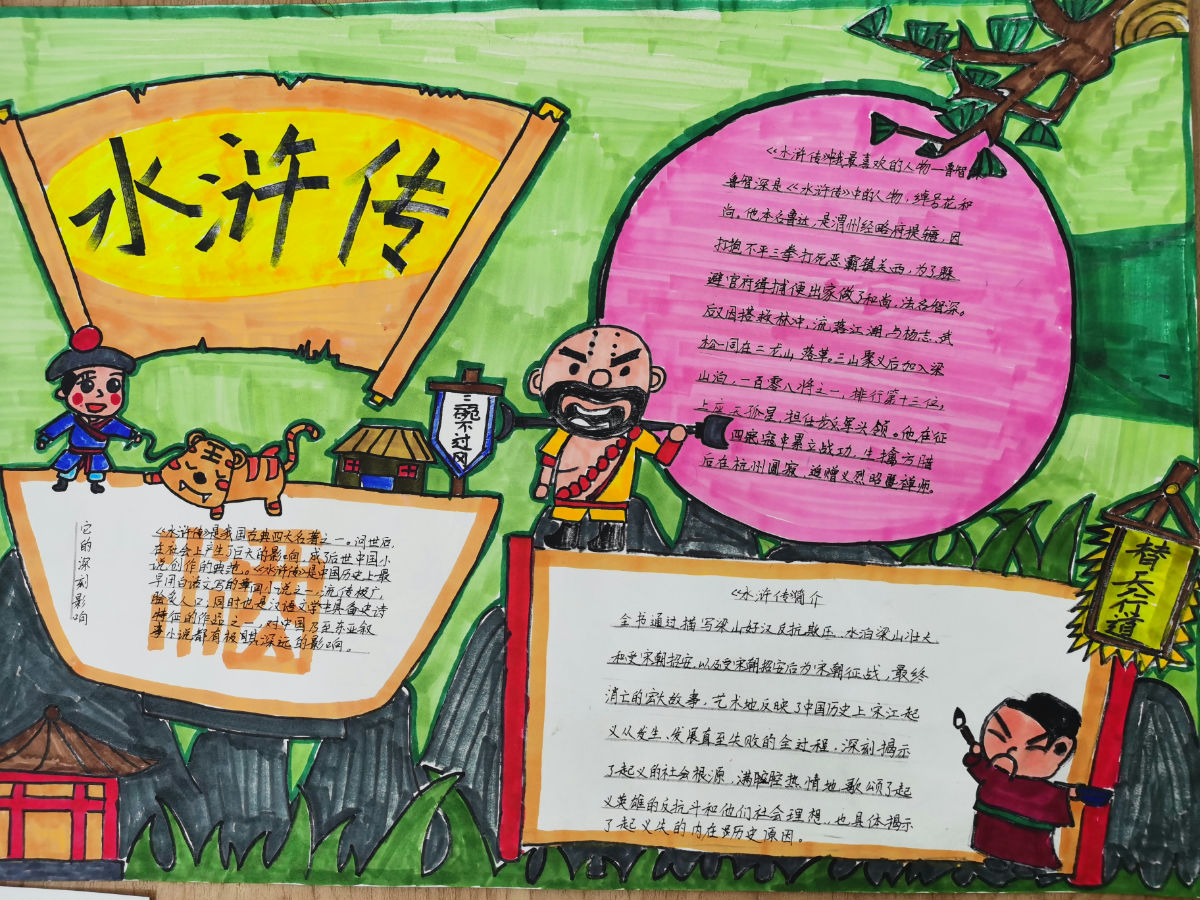 水浒传
《水浒传》我最喜欢的人物—鲁智
鲁智深是《水浒传》中的人物,绰号花和
尚。他本名鲁达,是渭州经略府提辖,因
打抱不平三拳打死恶霸镇关西,为了躲
避官府缉捕便出家做了和尚,法名智深。
后因搭救林冲,流落江湖,与杨志、武
松一同在二龙山落草。三山聚义后加入梁
山泊,一百零八将之一,排行第十三位,
上应天孤星,担任步军头领。他在征
四寇中累立战功,生擒方腊
后在杭州圆寂,追赠义烈昭暨禅师。
三碗不过冈
它的深刻影响
《水浒传》是我国古典四大名著之一。问世后,
在社会上产生了巨大的影响,成了后世中国小
说创作的典范。《水浒传》是中国历史上最
早用白话文写的章回小说之一,流传极广,
脍炙人口;同时也是汉语文学中具备史诗
特征的作品之一,对中国乃至东亚叙
事小说都有极其深远的影响。
替天行道
《水浒传》简介
全书通过描写梁山好汉反抗欺压、水泊梁山壮大
和受宋朝招安,以及受宋朝招安后为宋朝征战,最终
消亡的宏大故事,艺术地反映了中国历史上宋江起
义从发生、发展直至失败的全过程,深刻揭示
了起义的社会根源,满腔热情地歌颂了起
义英雄的反抗斗和他们社会理想,也具体揭示
了起义失的内在历史原因。